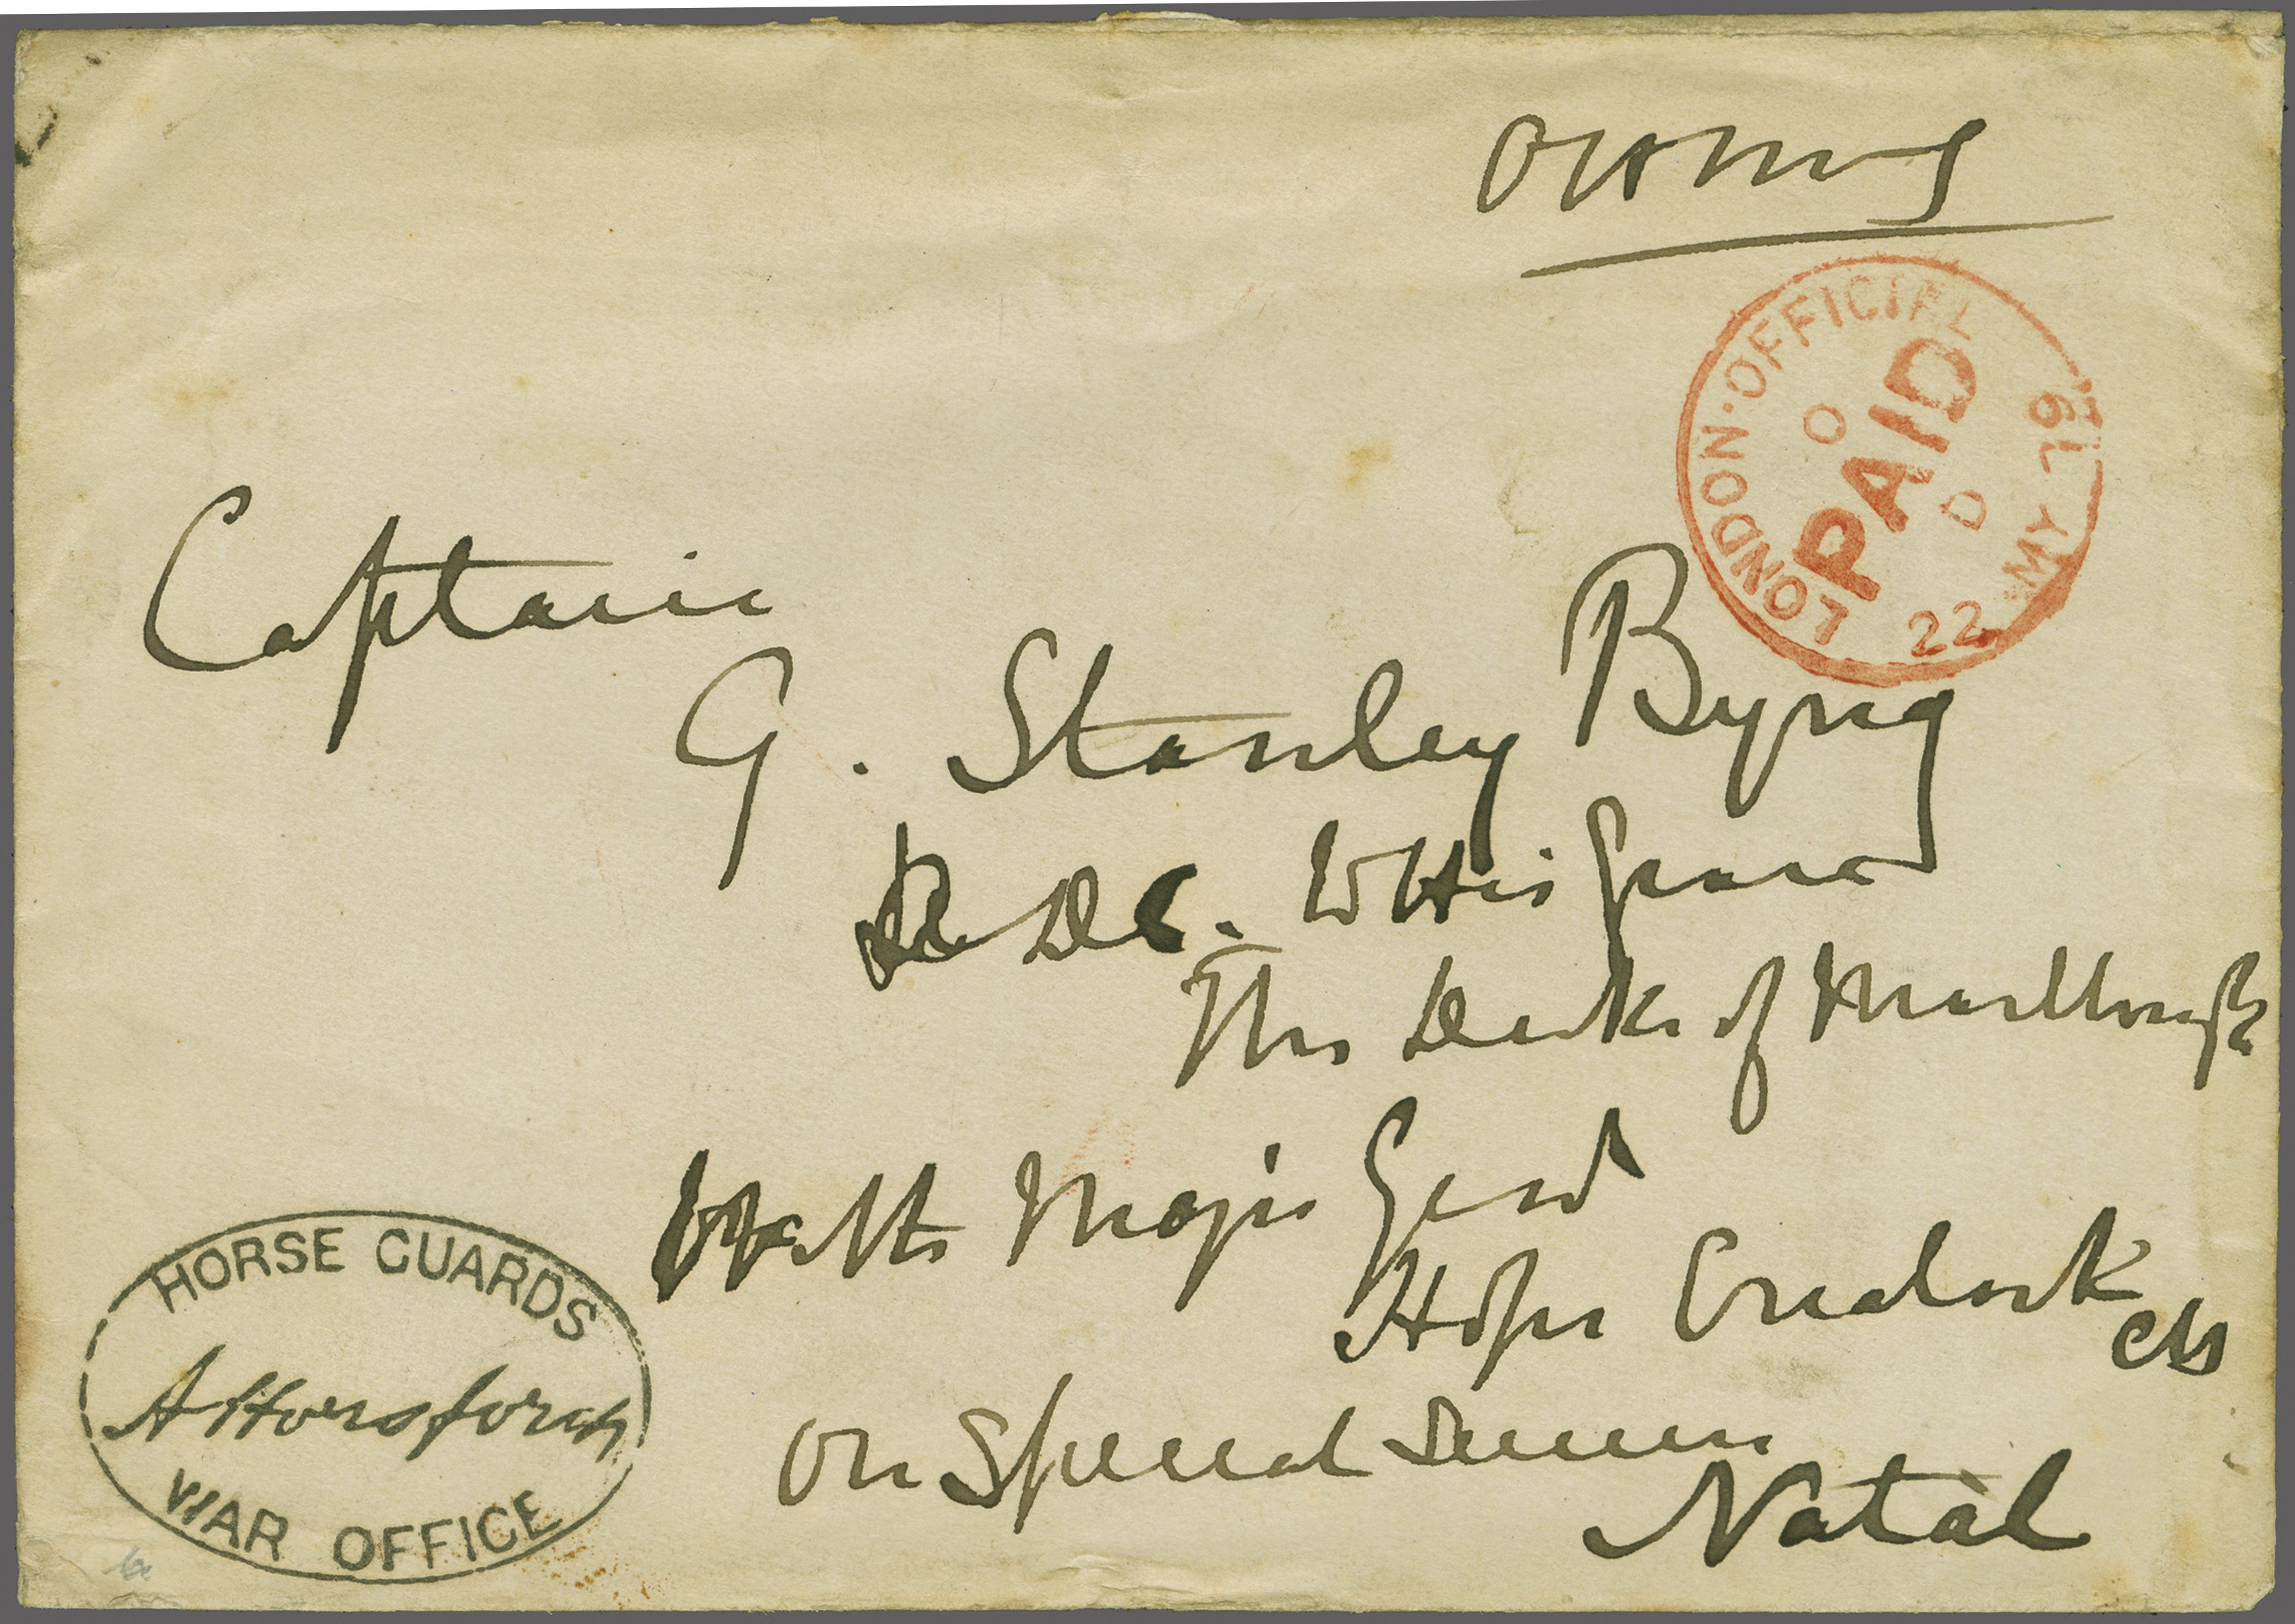 OHMS
LONDON·OFFICIAL
PAID
O
D
22 MY 79
Captain
G. Stanley Byng
ADC. to His Grace
The Duke of Marlborough
Major Genl
Hope Crealock
CB
on Special Service
Natal
HORSE GUARDS
AHorsford
WAR OFFICE